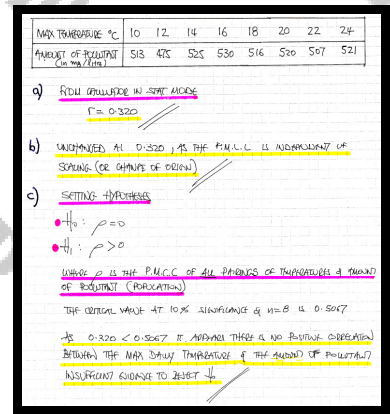 MAX TEMPERATURE °C 10 12 14 16 18 20 22 24
AMOUNT OF POLLUTANT (in mg/litre) 513 475 525 530 516 520 507 521
a) FROM CALCULATOR IN STAT MODE
r = 0.320
b) UNCHANGED AT 0.320, AS THE P.M.C.C IS INDEPENDENT OF
SCALING (OR CHANGE OF ORIGIN)
c) SETTING HYPOTHESES
• H₀ : ρ = 0
• H₁ : ρ > 0
WHERE ρ IS THE P.M.C.C OF ALL PAIRINGS OF TEMPERATURES & AMOUNT
OF POLLUTANT (POPULATION)
THE CRITICAL VALUE AT 10% SIGNIFICANCE & n=8 IS 0.5067
AS 0.320 < 0.5067 IT APPEARS THERE IS NO POSITIVE CORRELATION
BETWEEN THE MAX DAILY TEMPERATURE & THE AMOUNT OF POLLUTANT
INSUFFICIENT EVIDENCE TO REJECT H₀